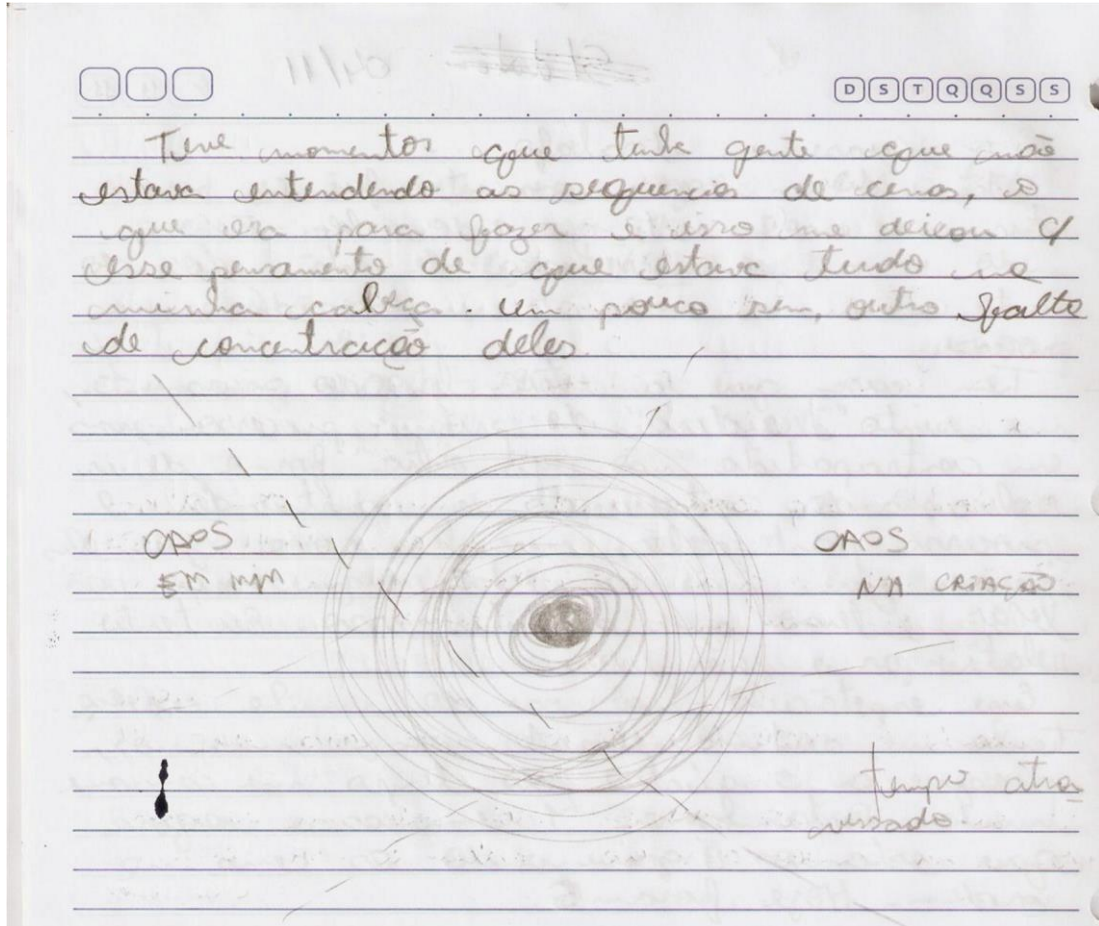 D S T Q Q S S
Teve momentos que tinha gente que não
estava entendendo as sequencias de cenas, o
que era para fazer e isso me deixou c/
esse pensamento de que estava tudo na
minha cabeça. Um pouco sim, outro falta
de concentração deles.
CAOS
EM MIM
CAOS
NA CRIAÇÃO
tempo atra
vessado